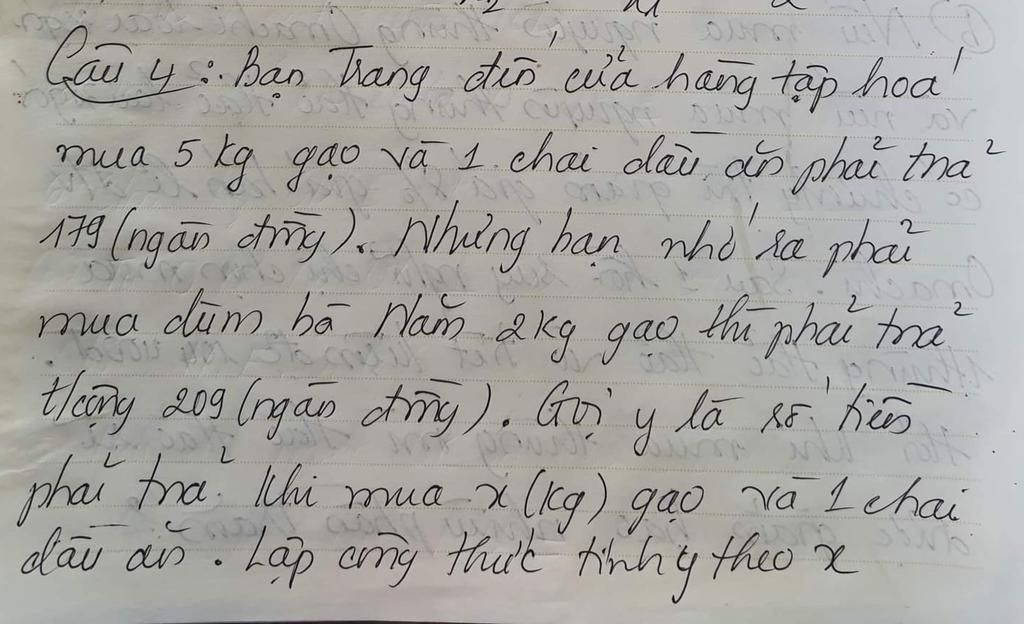 Câu 4: Bạn Trang đến cửa hàng tập hoá
mua 5 kg gạo và 1 chai dầu ăn phải trả
179 (ngàn đồng). Nhưng bạn nhớ ra phải
mua dùm bà Năm 2kg gạo thì phải trả
tổng cộng 209 (ngàn đồng). Gọi y là số tiền
phải trả khi mua x (kg) gạo và 1 chai
dầu ăn. Lập công thức tính y theo x